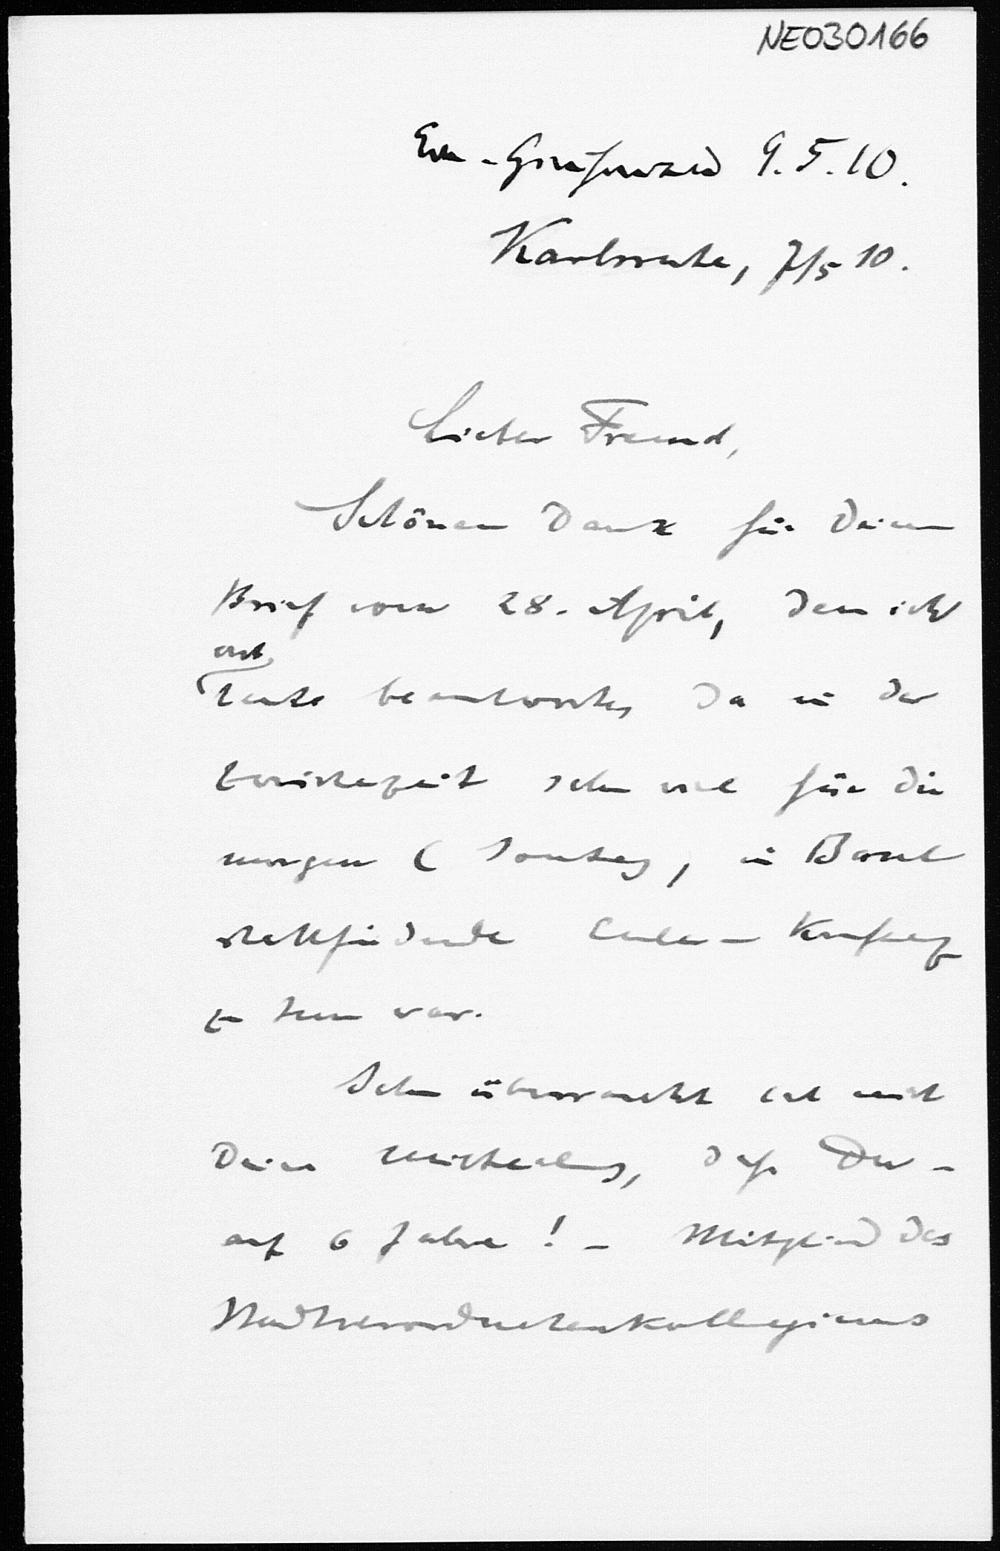 NE030166
Erh. Grunewald 9.5.10.
Karlsruhe, 7/5 10.
Lieber Freund,
Schönen Dank für Deinen
Brief vom 28. April, den ich
erst
heute beantworte, da in der
Zwischenzeit sehr viel für die
morgen (Sonntag, in Basel
stattfindende Euler-
zu tun war.
Sehr überrascht hat mich
Deine Mitteilung, daß Du -
auf 6 Jahre! - Mitglied des
Stadtverordnetenkollegiums